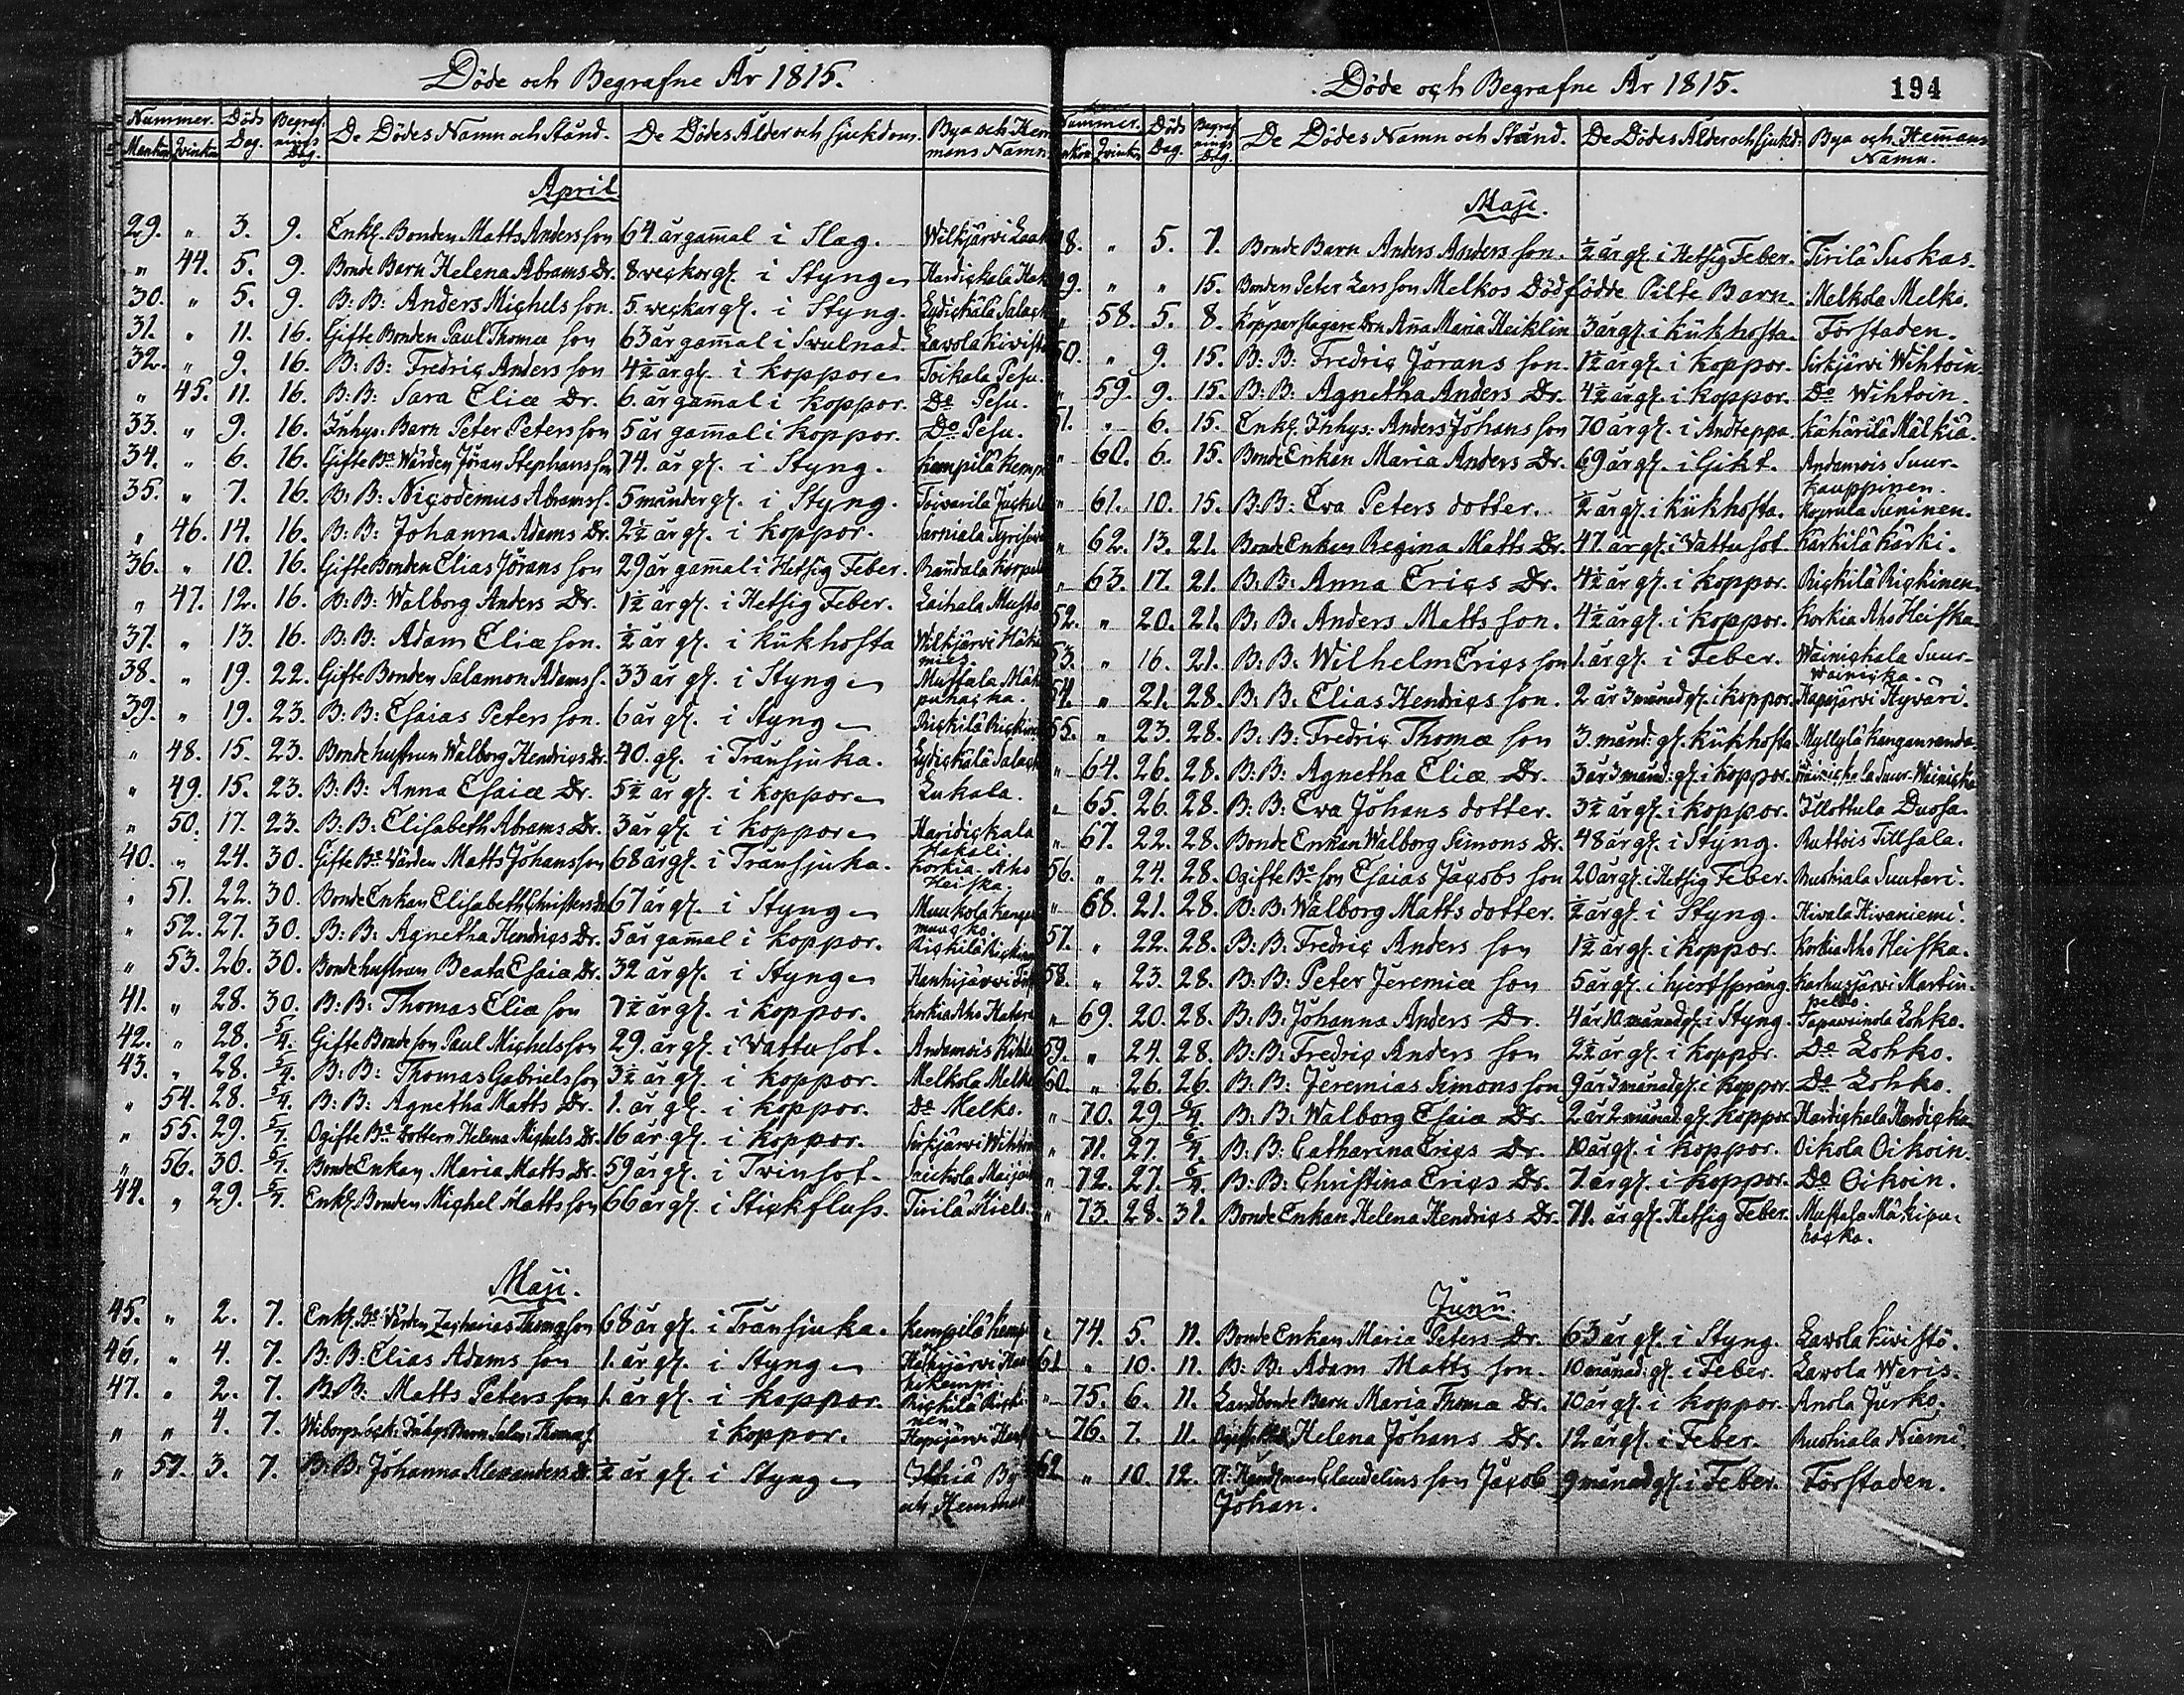 Döde och Begrafne År 1815.
Nummer. Döds Dag. Begrafnings Dag. De Dödes Namn och Stånd. De Dödes Ålder och Sjukdom. Bya och Hemmans Namn.
Mankön Qvinkön
April
29. " 3. 9. Enkl. Bonden Matts Andersson 64 år gam̄al i Slag. Wilkjärvi
" 44. 5. 9. Bonde Barn Helena Abrams Dr. 8 veckor gl. i Styng Hardickala
30. " 5. 9. B: B: Anders Michels son. 5 veckor gl. i Styng. Lydickälä
31. " 11. 16. Gifte Bonden Paul Thomæ son 63 år gam̄al i Svulnad. Lavola Kivistö
32. " 9. 16. B: B: Fredric Anders son 4½ år gl. i koppor Toikala Pesu.
" 45. 11. 16. B: B: Sara Eliæ Dr. 6. år gam̄al i koppor. Do Pesu.
33. " 9. 16. Inhys. Barn Peter Peters son 5 år gam̄al i koppor. Do Pesu.
34. " 6. 16. Gifte Be Wärden Jöran Stephans son 74. år gl. i Styng. Kempilä
35. " 7. 16. B: B: Nicodemus Abrams s. 5 månder gl. i Styng. Toivarila
" 46. 14. 16. B: B: Johanna Adams Dr. 2½ år gl. i koppor. Sarviala
36. " 10. 16. Gifte Bonden Elias Jörans son 29 år gam̄al i Hetsig Feber. Ran̄dala
" 47. 12. 16. B: B: Walborg Anders Dr. 1½ år gl. i Hetsig Feber. Laihala
37. " 13. 16. B: B: Adam Eliæ son. ½ år gl. i kikhosta Wilkjärvi
38. " 19. 22. Gifte Bonden Salamon Adams s. 33 år gl. i Styng Mustala Mäki
puhacka.
39. " 19. 23. B: B: Esaias Peters son. 6 år gl. i Styng Rickilä
" 48. 15. 23. Bonde hustrun Walborg Hendrics Dr. 40. gl. i Trånsjuka. Lydickälä
" 49. 15. 23. B: B: Anna Esaiæ Dr. 5½ år gl. i koppor Lukala.
" 50. 17. 23. B: B: Elisabeth Abrams Dr. 3 år gl. i koppor Haridickala
Hakali
40. " 24. 30. Gifte Be Wärden Matts Johansson 68 år gl. i Trånsjuka. Korkia-Aho
Heiska.
" 51. 22. 30. Bonde Enkan Elisabeth Christers Dr 67 år gl. i Styng Muukola
" 52. 27. 30. B: B: Agnetha Hendrics Dr. 5 år gam̄al i koppor. Rickilä
" 53. 26. 30. Bonde hustrun Beata Esaiæ Dr. 32 år gl. i Styng Hanhijärvi
41. " 28. 30. B: B: Thomas Eliæ son 7½ år gl. i koppor. Korkia Aho
42. " 28. 5/4. Gifte Bonde son Paul Michels son 29. år gl. i Vattusot. Andamois
43. " 28. 5/4. B: B: Thomas Gabriels son 3½ år gl. i koppor. Melkola
" 54. 28. 5/4. B: B: Agnetha Matts Dr. 1. år gl. i koppor. Do Melko.
" 55. 29. 5/7. Ogifte Be Dottern Helena Michels Dr. 16 år gl. i koppor. Sirkjärvi
" 56. 30. 5/7. Bonde Enkan Maria Matts Dr. 59 år gl. i Tvinsot.
44. " 29. 5/7. Enkl. Bonden Michel Matts son 66 år gl. i Stickfluss. Tirilä
Maji.
45. " 2. 7. Enkl. Be: Wärden Zacharias Thomæ son 68 år gl. i Trånsjuka. Kempilä
46. " 4. 7. B: B: Elias Adams son 1. år gl. i Styng
47. " 2. 7. B: B: Matts Peters son 1. år gl. i koppor. Rickilä
" " 4. 7. i koppor. Hapajärvi
" 57. 3. 7. B: B: Johanna Alexanders Dr. ½ år gl. i Styng Ihhiä By
och Hemman
Döde och Begrafne År 1815. 194
Nummer. Döds Dag. Begrafnings Dag. De Dödes Namn och Stånd. De Dödes Ålder och Sjukd: Bya och Hem̄ans
Namn.
Maji.
48. " 5. 7. Bonde Barn Anders Anders son. ½ år gl. i Hetsig Feber. Tirilä Suokas.
49. " " 15. Bonden Peter Lars son Melkos Dödfödde Pilte Barn Melkola Melko.
" 58. 5. 8. Kopparslagare Drn An̄a Maria Heiklin 3 år gl. i kikhosta. Förstaden.
50. " 9. 15. B: B: Fredric Jörans son. 1½ år gl. i koppor. Sirkjärvi Wihtoin.
" 59. 9. 15. B: B: Agnetha Anders Dr. 4½ år gl. i koppor. Do Wihtoin.
51. " 6. 15. Enkl. Inhys: Anders Johans son 70 år gl. i Andteppa. Kähärilä Mälkiä.
" 60. 6. 15. Bonde Enkan Maria Anders Dr. 69 år gl. i Gikt. Andamois Suur-
Kauppinen.
" 61. 10. 15. B: B: Eva Peters dotter. ½ år gl. i kikhosta. Suninen.
" 62. 13. 21. Bonde Enkan Regina Matts Dr. 47. år gl. i Vattusot. Kärkilä Kärki.
" 63. 17. 21. B: B: Anna Erics Dr. 4½ år gl. i koppor. Rickilä Rickinen
52. " 20. 21. B: B: Anders Matts son. 4½ år gl. i koppor. Korkia Aho Heiska.
53. " 16. 21. B: B: Wilhelm Erics son 1. år gl. i Feber. Wainickala Suur-
Wainicka.
54. " 21. 28. B: B: Elias Hendrics son. 2 år 3 månad gl. i koppor. Hapajärvi Hyväri.
55. " 23. 28. B: B: Fredric Thomæ son 3. månd: gl. kikhosta. Myllylä Kanganranda.
" 64. 26. 28. B: B: Agnetha Eliæ Dr. 3 år 3 månd: gl. i koppor. Wainickala Suur-Wainicka
" 65. 26. 28. B: B: Eva Johans dotter. 3½ år gl. i koppor. Illottula Duosa.
" 67. 22. 28. Bonde Enkan Walborg Simons Dr. 48 år gl. i Styng. Ruttois Tillsala.
56. " 24. 28. Ogifte Be son Esaias Jacobs son 20 år gl. i Hetsig Feber. Ruohiala Suutari.
" 68. 21. 28. B: B: Walborg Matts dotter. ½ år gl. i Styng. Hivala Hivaniemi.
57. " 22. 28. B: B: Fredric Anders son 1½ år gl. i koppor. Korkia Aho Heiska.
58. " 23. 28. B: B: Peter Jeremiæ son 5 år gl. i hjertsprång. Karhusjärvi Martin-
peldo.
" 69. 20. 28. B: B: Johanna Anders Dr. 4 år 10 månad gl. i Styng. Tapavainola Lohko.
59. " 24. 28. B: B: Fredric Anders son 2½ år gl. i koppor. Do Lohko.
60. " 26. 26. B: B: Jeremias Simons son 9 år 3 månad gl. i koppor. Do Lohko.
" 70. 29 6/4. B: B: Walborg Esaiæ Dr. 2 år 2 månad gl. koppor Hardickala Hardicka
" 71. 27. 6/4. B: B: Catharina Erics Dr. 10 år gl. i koppor. Oikola Oikoin.
" 72. 27. 6/4. B: B: Christina Erics Dr. 7. år gl. i koppor. Do Oikoin.
" 73. 28. 31. Bonde Enkan Helena Hendrics Dr. 71. år gl. Hetsig Feber. Mustala Mäkipu-
hacka.
Junii.
" 74. 5. 11. Bonde Enkan Maria Peters Dr. 63 år gl. i Styng. Lavola Kivistö.
61 " 10. 11. B: B: Adam Matts son. 10 månad: gl. i Feber. Lavola Waris.
" 75. 6. 11. Landbonde Barn Maria Thomæ Dr. 10 år gl. i koppor. Anola Jurko.
" 76. 7. 11. Helena Johans Dr. 12 år gl. i Feber. Ruohiala Niemi.
62 " 10. 12. H: Handlman Claudelius son Jacob 9 månad gl. i Feber. Förstaden.
Johan.